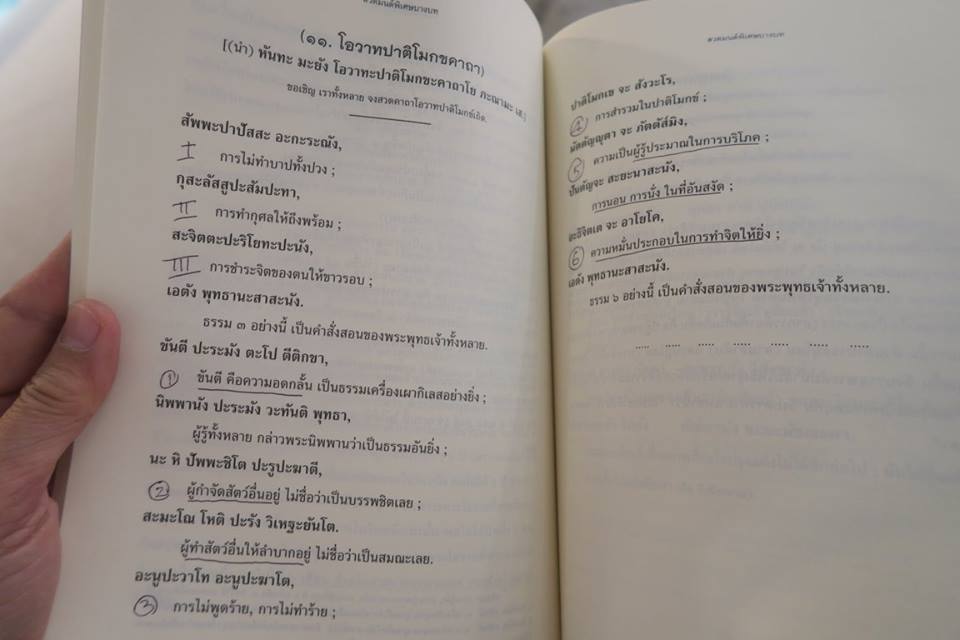 สวดมนต์พิเศษบางบท
(๑๑. โอวาทปาติโมกขคาถา)
[(นำ) หันทะ มะยัง โอวาทะปาติโมกขะคาถาโย ภะณามะ เส.]
ขอเชิญ เราทั้งหลาย จงสวดคาถาโอวาทปาติโมกข์เถิด.
สัพพะปาปัสสะ อะกะระณัง,
I การไม่ทำบาปทั้งปวง ;
กุสะลัสสูปะสัมปะทา,
II การทำกุศลให้ถึงพร้อม ;
สะจิตตะปะริโยทะปะนัง,
III การชำระจิตของตนให้ขาวรอบ ;
เอตัง พุทธานะสาสะนัง.
ธรรม ๓ อย่างนี้ เป็นคำสั่งสอนของพระพุทธเจ้าทั้งหลาย.
ขันตี ปะระมัง ตะโป ตีติกขา,
1 ขันตี คือความอดกลั้น เป็นธรรมเครื่องเผากิเลสอย่างยิ่ง ;
นิพพานัง ปะระมัง วะทันติ พุทธา,
ผู้รู้ทั้งหลาย กล่าวพระนิพพานว่าเป็นธรรมอันยิ่ง ;
นะ หิ ปัพพะชิโต ปะรูปะฆาตี,
2 ผู้กำจัดสัตว์อื่นอยู่ ไม่ชื่อว่าเป็นบรรพชิตเลย ;
สะมะโณ โหติ ปะรัง วิเหฐะยันโต.
ผู้ทำสัตว์อื่นให้ลำบากอยู่ ไม่ชื่อว่าเป็นสมณะเลย.
อะนูปะวาโท อะนูปะฆาโต,
3 การไม่พูดร้าย, การไม่ทำร้าย ;
สวดมนต์พิเศษบางบท
ปาติโมกเข จะ สังวะโร,
4 การสำรวมในปาติโมกข์ ;
มัตตัญญุตา จะ ภัตตัส๎มิง,
5 ความเป็นผู้รู้ประมาณในการบริโภค ;
ปันตัญจะ สะยะนาสะนัง,
การนอน การนั่ง ในที่อันสงัด ;
อะธิจิตเต จะ อาโยโค,
6 ความหมั่นประกอบในการทำจิตให้ยิ่ง ;
เอตัง พุทธานะสาสะนัง.
ธรรม ๖ อย่างนี้ เป็นคำสั่งสอนของพระพุทธเจ้าทั้งหลาย.
..... ..... ..... ..... ..... ..... .....